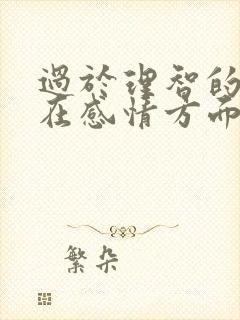 過於理智的
在感情方面
繁朵